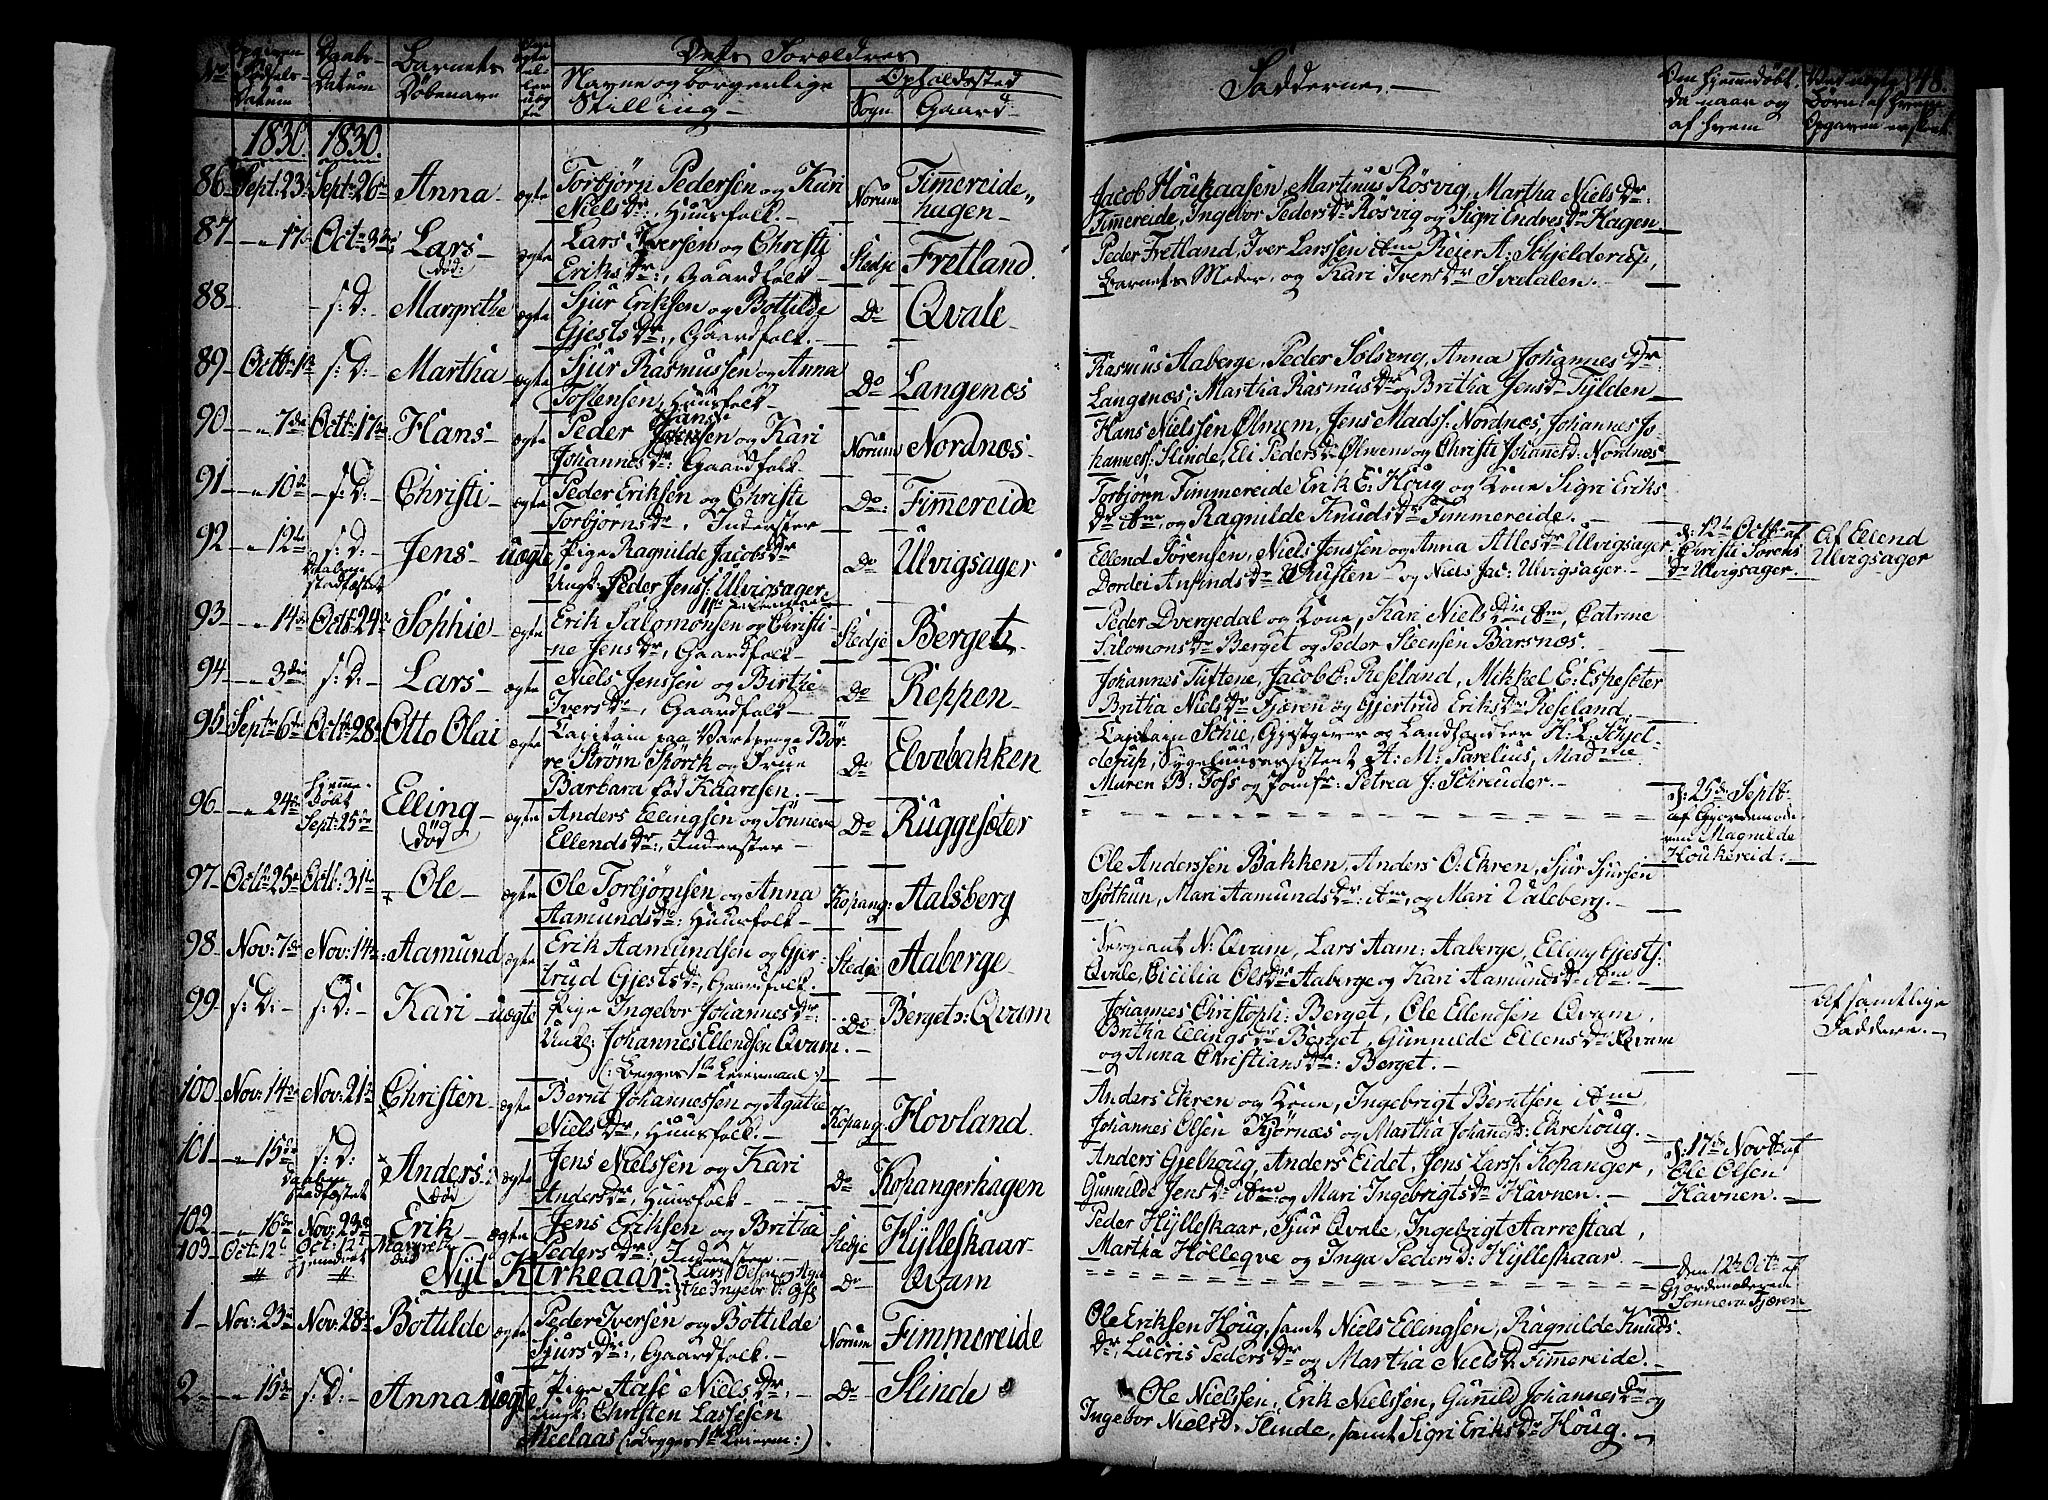 No Opgiven Fødsels- Datum
Daabs- Datum
Barnets Døbenavn
Om ægte eller uægte
Dets Forældres
Navne og borgerlige Stilling -
Opholdssted
Sogn Gaard -
Fadderne. -
Om hjemmedøbt, da naar og af hvem
Ved uægte Børn af hvem Opgaven er skeet
48.
1830. 1830.
86 Sept: 23 Sept: 26 Anna ægte Torbjørn Pedersen og Kari
Niels Dr:, Huusfolk. - Norum Fimmereide-
hagen -
Jacob Houkaasen, Martinus Røsvig, Martha Niels Dr:
Fimmereide, Ingebor Peders Dr Røsvig og Sigri Endres Dr Hagen.
87 - " 17 Oct: 3 Lars - ægte Lars Iversen og Christi
død:
Eriks Dr:, Gaardfolk Stedje Fretland.
Peder Fretland, Iver Larssen ibm Reier A: Schjelderup,
Barnets Moder, og Kari Ivers Dr Svedalen. -
88 - - s: D: - Margrethe ægte Sjur Eriksen og Bottilde
Gjests Dr, Gaardfolk. - Do Qvale -
89 Octb: 1 s: D: - Martha ægte Sjur Rasmussen og Anna
Tostensen, Huusfolk - Do Langenæs
Rasmus Aaberge, Peder Sølseng, Anna Johannes Dr
Langenæs, Martha Rasmus Dr og Britha Jens Dr Tylden
90 - " 7de Octb: 17 Hans - ægte Peder Hans
Jensen og Kari
Johannes Dr: Gaardfolk - Norum Nordnæs -
Hans Nielssen Ølmem, Jens Mads: Nordnæs, Johannes Jo-
hanness: Slinde, Eli Peders Dr Ølmem og Christi Johannes D: Nordnæs
91 - " 10 - s: D: - Christi ægte Peder Eriksen og Christi
Torbjørns Dr, Inderster Do: Fimmereide
Torbjørn Fimmereide Erik E: Houg og Kone Sigri Eriks
Dr ibm, og Ragnilde Knuds Dr Fimmereide. -
92 - " 12te s: D: Jens - uægte Pige Ragnilde Jacobs Dr
Daaben
stadfæstet
Ungk: Peder Jenss: Ulvigsager Do Ulvigsager
1ste Leiermaal
Ellend Sørensen, Niels Jenssen og Anna Atles Dr Ulvigsager
Dordei Ansfinds Dr Husten - og Niels Jac: Ulvigsager. -
d: 12te Octb: af
Christi Sørens
Dr Ulvigsager.
Af Ellend
Ulvigsager
93 - " 14 Octb: 24 Sophie - ægte Erik Salomonsen og Christi-
ne Jens Dr, Gaardfolk - Stedje Berget.
Peder Dvergedal og Kone, Kari Niels Dr ibm, Catrine
Salomons Dr Berget og Peder Steensen Barsnæs.
94 - " 3die s: D: - Lars - ægte Niels Jenssen og Birthe
Ivers Dr, Gaardfolk - Do Reppen -
Johannes Tuftene, Jacob E: Reseland, Mikkel E: Espeseter
Britha Niels Dr Fjæren og Gjertrud Eriks Dr Reseland
95 Septr 6te Octb: 28 Otto Olai ægte Capitain paa Vartpenge Bør-
re Strøm Skørck og Frue
Barbara fød Knartsen. - Do Elvebakken
Capitain Schie, Gjestgiver og Landhandler H: L: Schjel-
derup, A: M: Parelius, Madme
Maren B: Foss og Jomfr: Petrea J: Schreuder. -
96 - " 24 Hjemme-
døbt
Sept: 25 Elling - ægte Anders Ellingsen og Sønneve
død
Ellends Dr:, Inderster - Do Ruggesæter
d: 25 Septb:
af Gjordemode-
ren Magnilde
Houkereid:
97 Octb: 25 Octb: 31 × Ole - ægte Ole Torbjørnsen og Anna
Aamunds Dr: Huusfolk - Kopang: Aalsberg
Ole Anderssen Bakken, Anders O: Ekren, Sjur Sjursen
Sjøthun, Mari Aamunds Dr: ibm, og Mari Valeberg. -
98 Nov: 7de Nov: 14 Aamund ægte Erik Aamundsen og Gjer-
trud Gjests Dr, Gaardfolk. Stedje Aaberge -
Sergeant N: Qvam, Lars Aam: Aaberge, Elling Gjests:
Qvale, Cicilia Ols Dr Aaberge og Kari Aamunds Dr ibm. -
99 s: D: - s: D: - Kari - uægte Pige Ingebor Johannes Dr:
Ungk: Johannes Ellendsen Qvam. -
(: Begges 1ste Leiermaal :) Do Berget og Qvam
Johannes Christoph: Berget, Ole Ellendsen Qvam,
Britha Ellings Dr Berget, Gunnilde Ellens Dr Qvam
og Anna Christians Dr: Berget. -
Af samtlige
Faddere. -
100 Nov: 14 Nov: 21 × Christen - ægte Bernt Johannessen og Agathe
Niels Dr, Huusfolk. - Kopang: Hovland.
Anders Ekren og Kone, Ingebrigt Berntsen ibm,
Johannes Olsen Kjørnæs og Martha Johannes D: Ekrehoug.
101 - " 15 s: D: × Anders - ægte Jens Nielssen og Kari
Daaben
stadfæstet
død
Anders Dr, Huusfolk - Do Kopangerhagen
Anders Gjelhoug, Anders Eidet, Jens Larss: Kopanger,
Gunnilde Jens Dr ibm og Mari Ingebrigts Dr Havnen. -
d: 17de Novb: af
Ole Olsen
Havnen.
102 - " 16 Nov: 23 Erik - ægte Jens Eriksen og Britha
Peders Dr, Inderster - Stedje Hylleskaar -
Peder Hylleskaar, Sjur Qvale, Ingebrigt Aarrestad,
Martha Hølleqve og Inga Peders D: Hylleskaar. -
103 - Oct: 12 Oct: 12 Margrete
hjemdøbt død
Lars Olsen og Aga-
the Ingebr D: Do Qvam
Den 12 Oct: af
Gjordemoderen
Sønneva Fjæren
Nyt Kirkeaar.
1 - Nov: 23 Nov: 28 Bottilde ægte Peder Iversen og Bottilde
Sjurs Dr:, Gaardfolk. Norum Fimmereide
Ole Eriksen Houg, samt Niels Ellingsen, Ragnilde Knuds
Dr, Lucris Peders Dr og Martha Niels D: Fimmereide. -
2 - - " 15 s: D: - Anna uægte Pige Aase Niels Dr, -
Ungk: Christen Lassesen
Meelaas (: Begges 1ste Leierm: :) Do Slinde
Ole Nielssen, Erik Nielssen, Gunnild Johannes Dr og
Ingebor Niels D. Slinde, samt Sigri Eriks Dr Houg. -